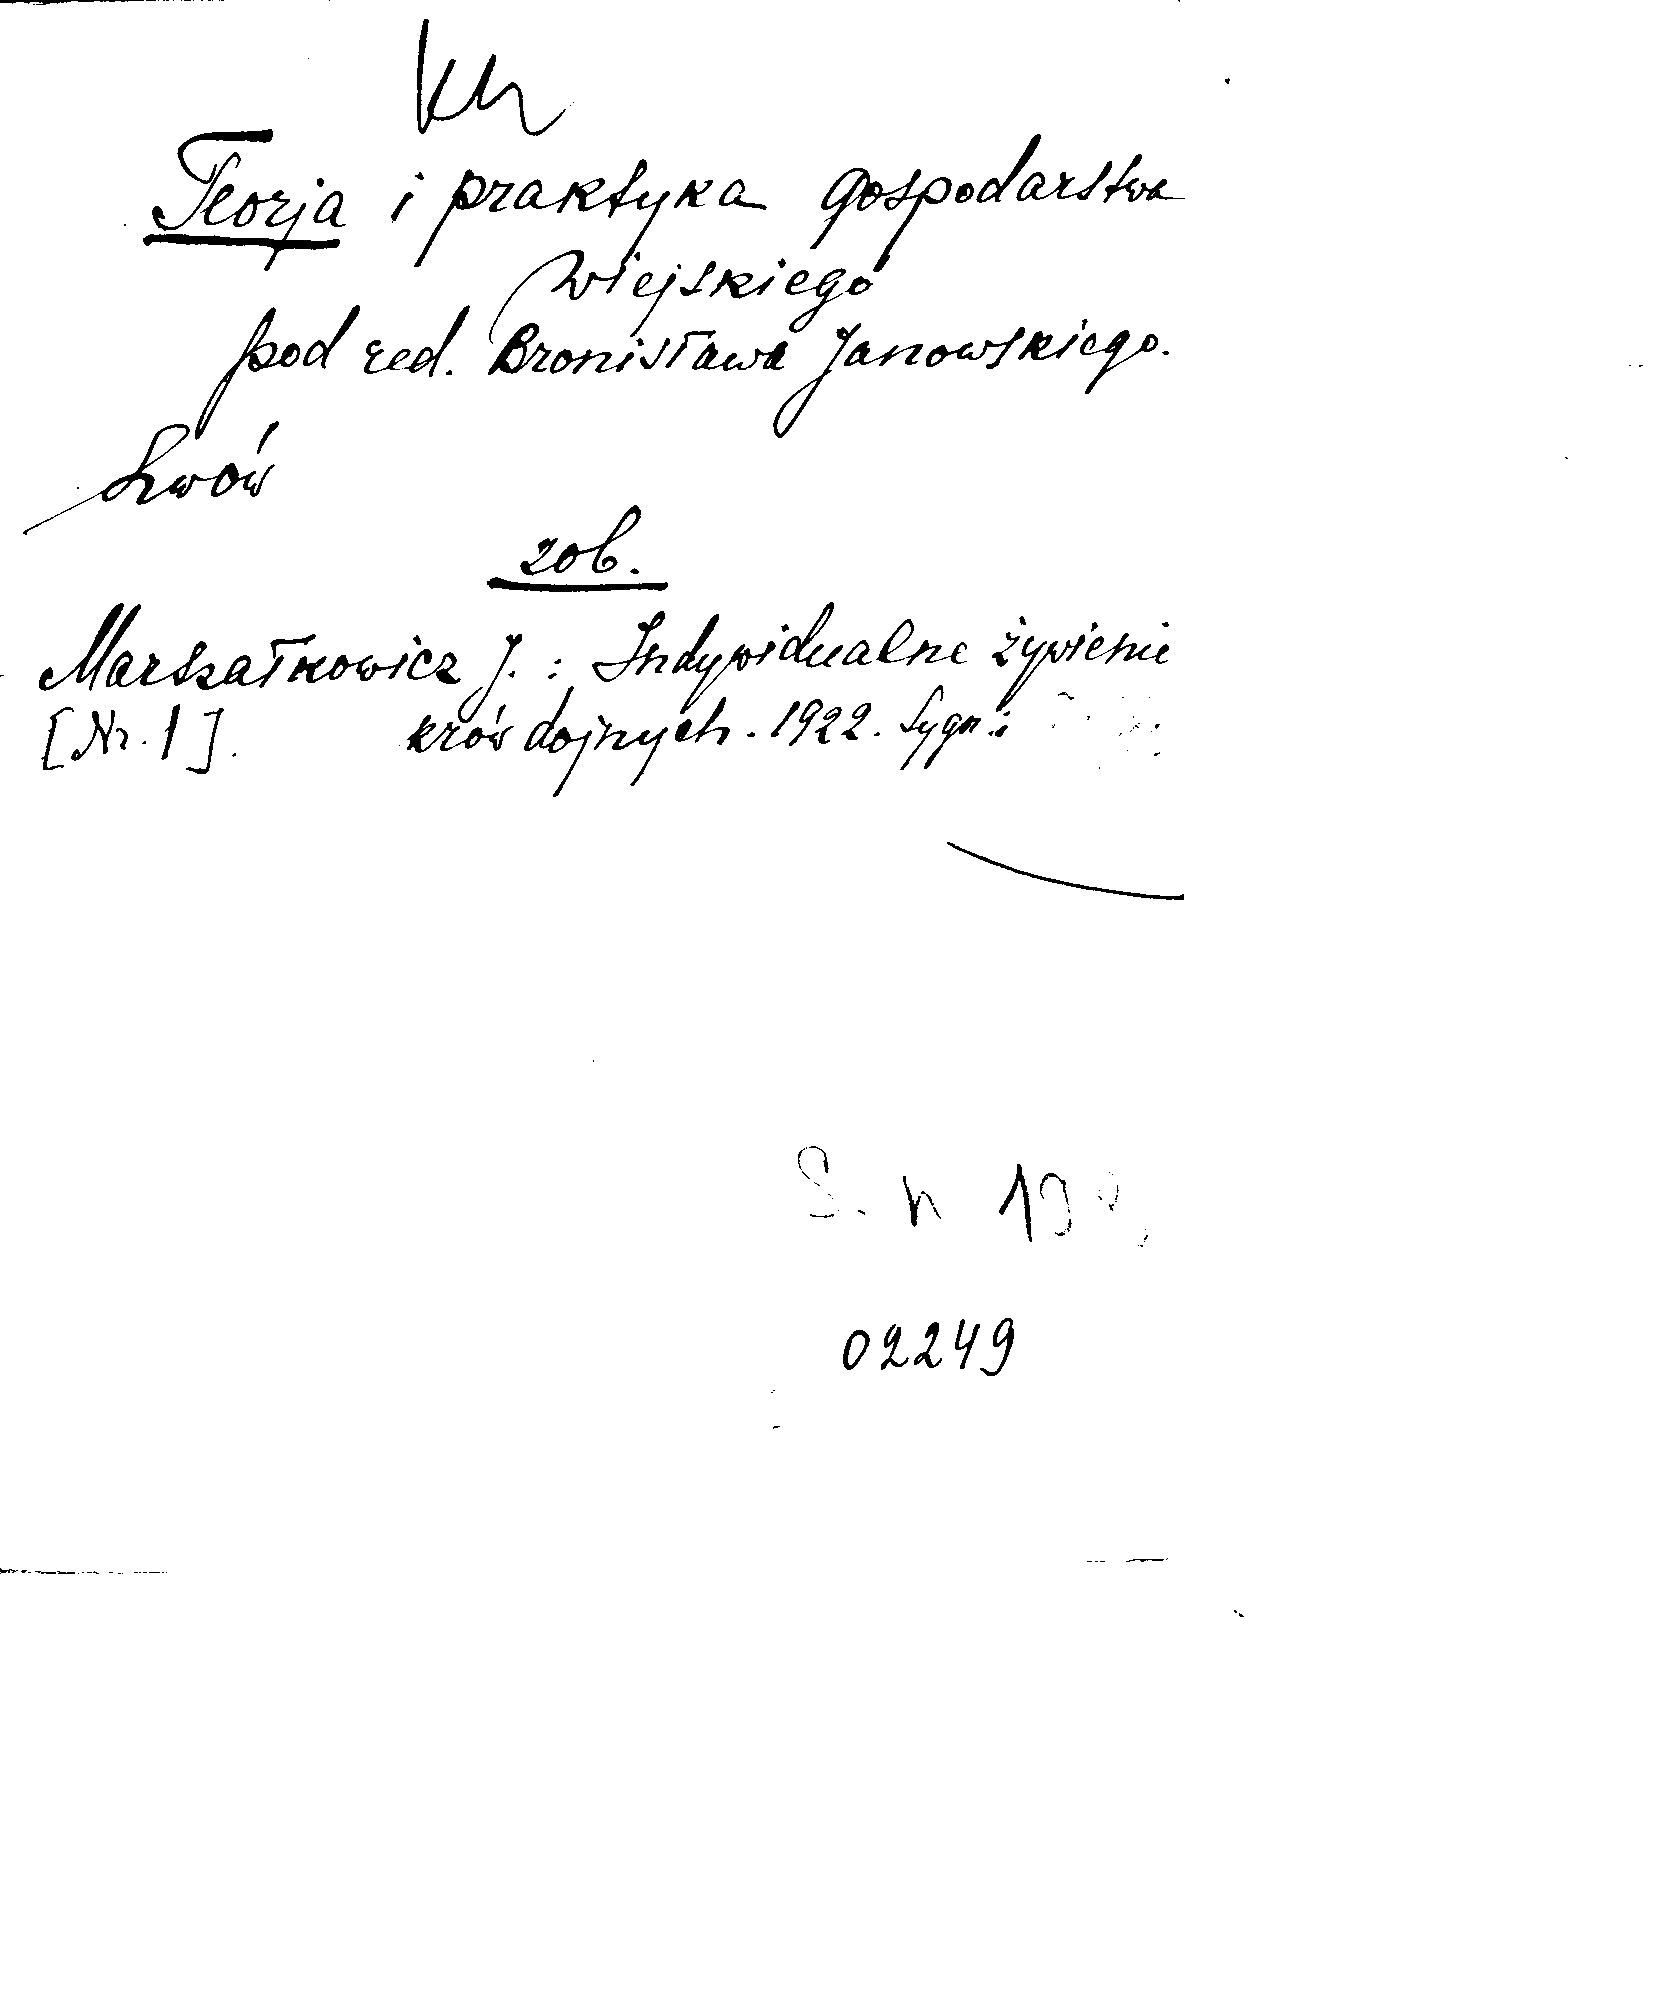 Kh
Teorja i praktyka gospodarstwa
wiejskiego
pod red. Bronisława Janowskiego.
Lwów
zob.
Marszałkowicz J. : Indywidualne żywienie
[Nr. 1]. krów dojnych. 1922. Sygn.:
S. n
02249